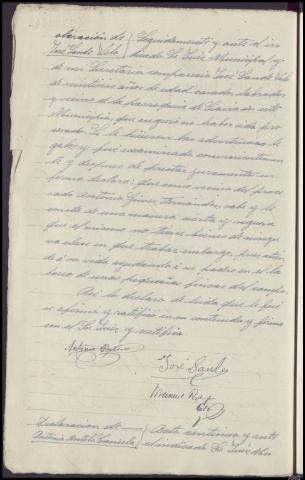 claración de Seguidamente y ante el in
José Sande Vilela dicado Sr. Juez Municipal y
de mi Secretario comparece José Sande Vile
de veintiseis años de edad casado, labrador
y vecino de la parroquia de en este
Municipio, que aseguró no haber sido pro
cesado. Se le hicieron las advertencias le
gales y fué examinado convenientemen
te y después de prestar juramento en
forma declara: que como vecino del proce
sado Antonio Fernández, sabe y le
consta de una manera cierta y segura
que el mismo no tiene bienes de ningu
na clase en que trabar embargo, pues atien
de a su vida ayudando a su padre en el la
boreo de unas pequeñas fincas del campo.
Asi lo declara de leida que le fué
se afirma y ratifica en su contenido y firma
con el Sr. Juez y certifico.
Antonio
José Sande
Manuel
Declaración de Acto continuo y ante
Antonio el indicado Sr. Juez Mu